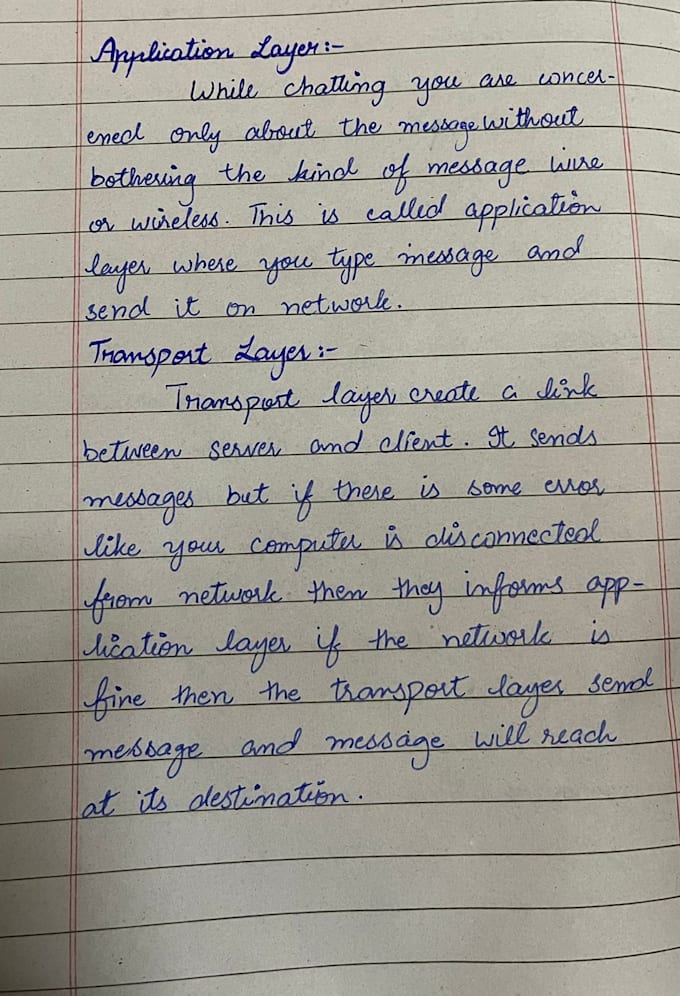 Application Layer:-
While chatting you are concer-
ened only about the message without
bothering the kind of message wire
or wireless. This is called application
layer where you type message and
send it on network.
Transport Layer:-
Transport layer create a link
between server and client. It sends
messages but if there is some error
like your computer is disconnected
from network then they informs app-
lication layer if the network is
fine then the transport layer send
message and message will reach
at its destination.